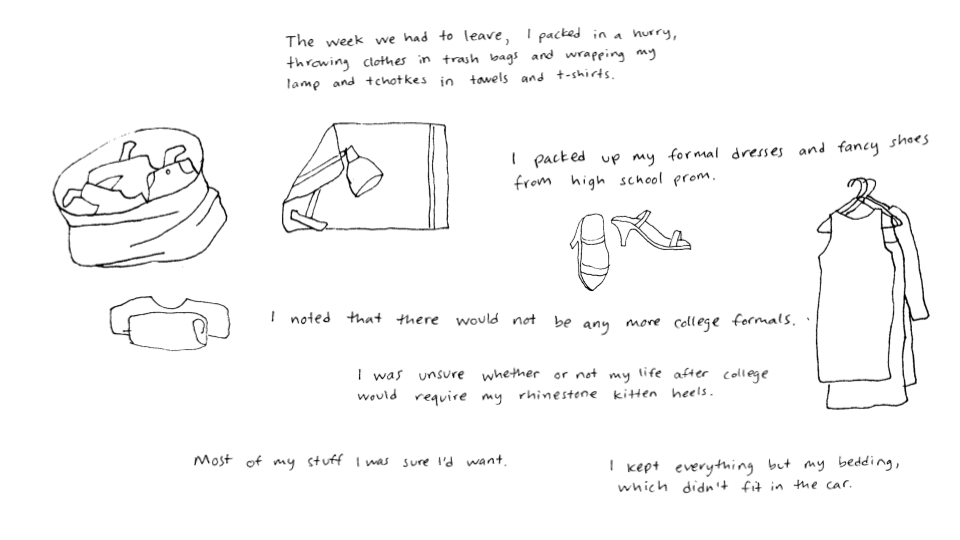 The week we had to leave, I packed in a hurry,
throwing clothes in trash bags and wrapping my
lamp and tchotkes in towels and t-shirts.
I packed up my formal dresses and fancy shoes
from high school prom.
I noted that there would not be any more college formals.
I was unsure whether or not my life after college
would require my rhinestone kitten heels.
Most of my stuff I was sure I'd want.
I kept everything but my bedding,
which didn't fit in the car.